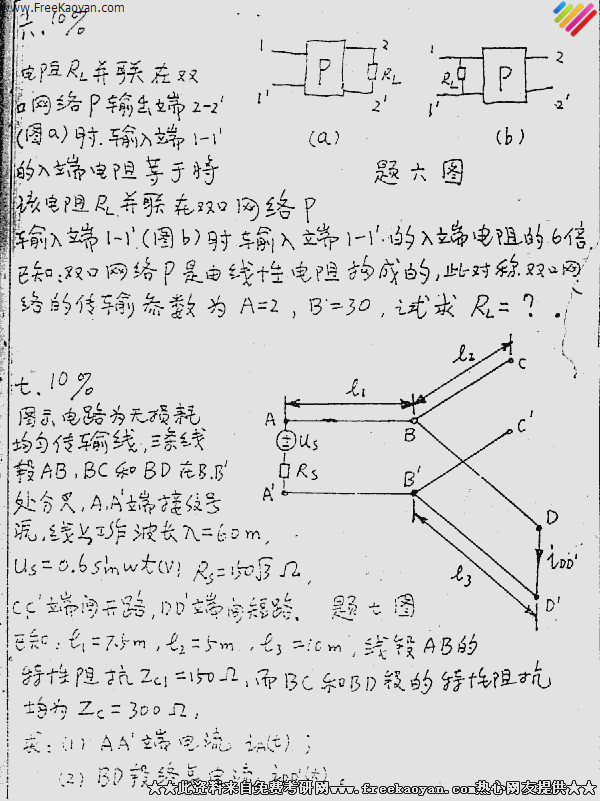 www.FreeKaoyan.com
六、10%
电阻RL并联在双
口网络P输出端2-2'
(图a)时.输入端1-1'
的入端电阻等于将
该电阻RL并联在双口网络P
输入端1-1'(图b)时输入端1-1'的入端电阻的6倍.
已知:双口网络P是由线性电阻构成的,此对称双口网
络的传输参数为A=2,B=30,试求RL=?.
1 2 P RL 1' 2'
(a)
1 2 RL P 1' 2'
(b)
题六图
七、10%
图示电路为无损耗
均匀传输线,三条线
段AB,BC和BD在B.B'
处分叉,A.A'端接信号
源,线上工作波长λ=60m,
Us=0.6sinwt(V) Rs=150√3Ω,
CC'端间开路,DD'端间短路. 题七图
已知:l1=7.5m,l2=5m,l3=10m,线段AB的
特性阻抗Zc1=150Ω,而BC和BD段的特性阻抗
均为Zc=300Ω,
求:(1)AA'端电流iA(t);
(2)BD段终点电流iDD'(t).
l1 l2 l3 A B C C' D D' A' B' Us Rs iDD'
★★此资料来自免费考研网www.freekaoyan.com热心网友提供★★